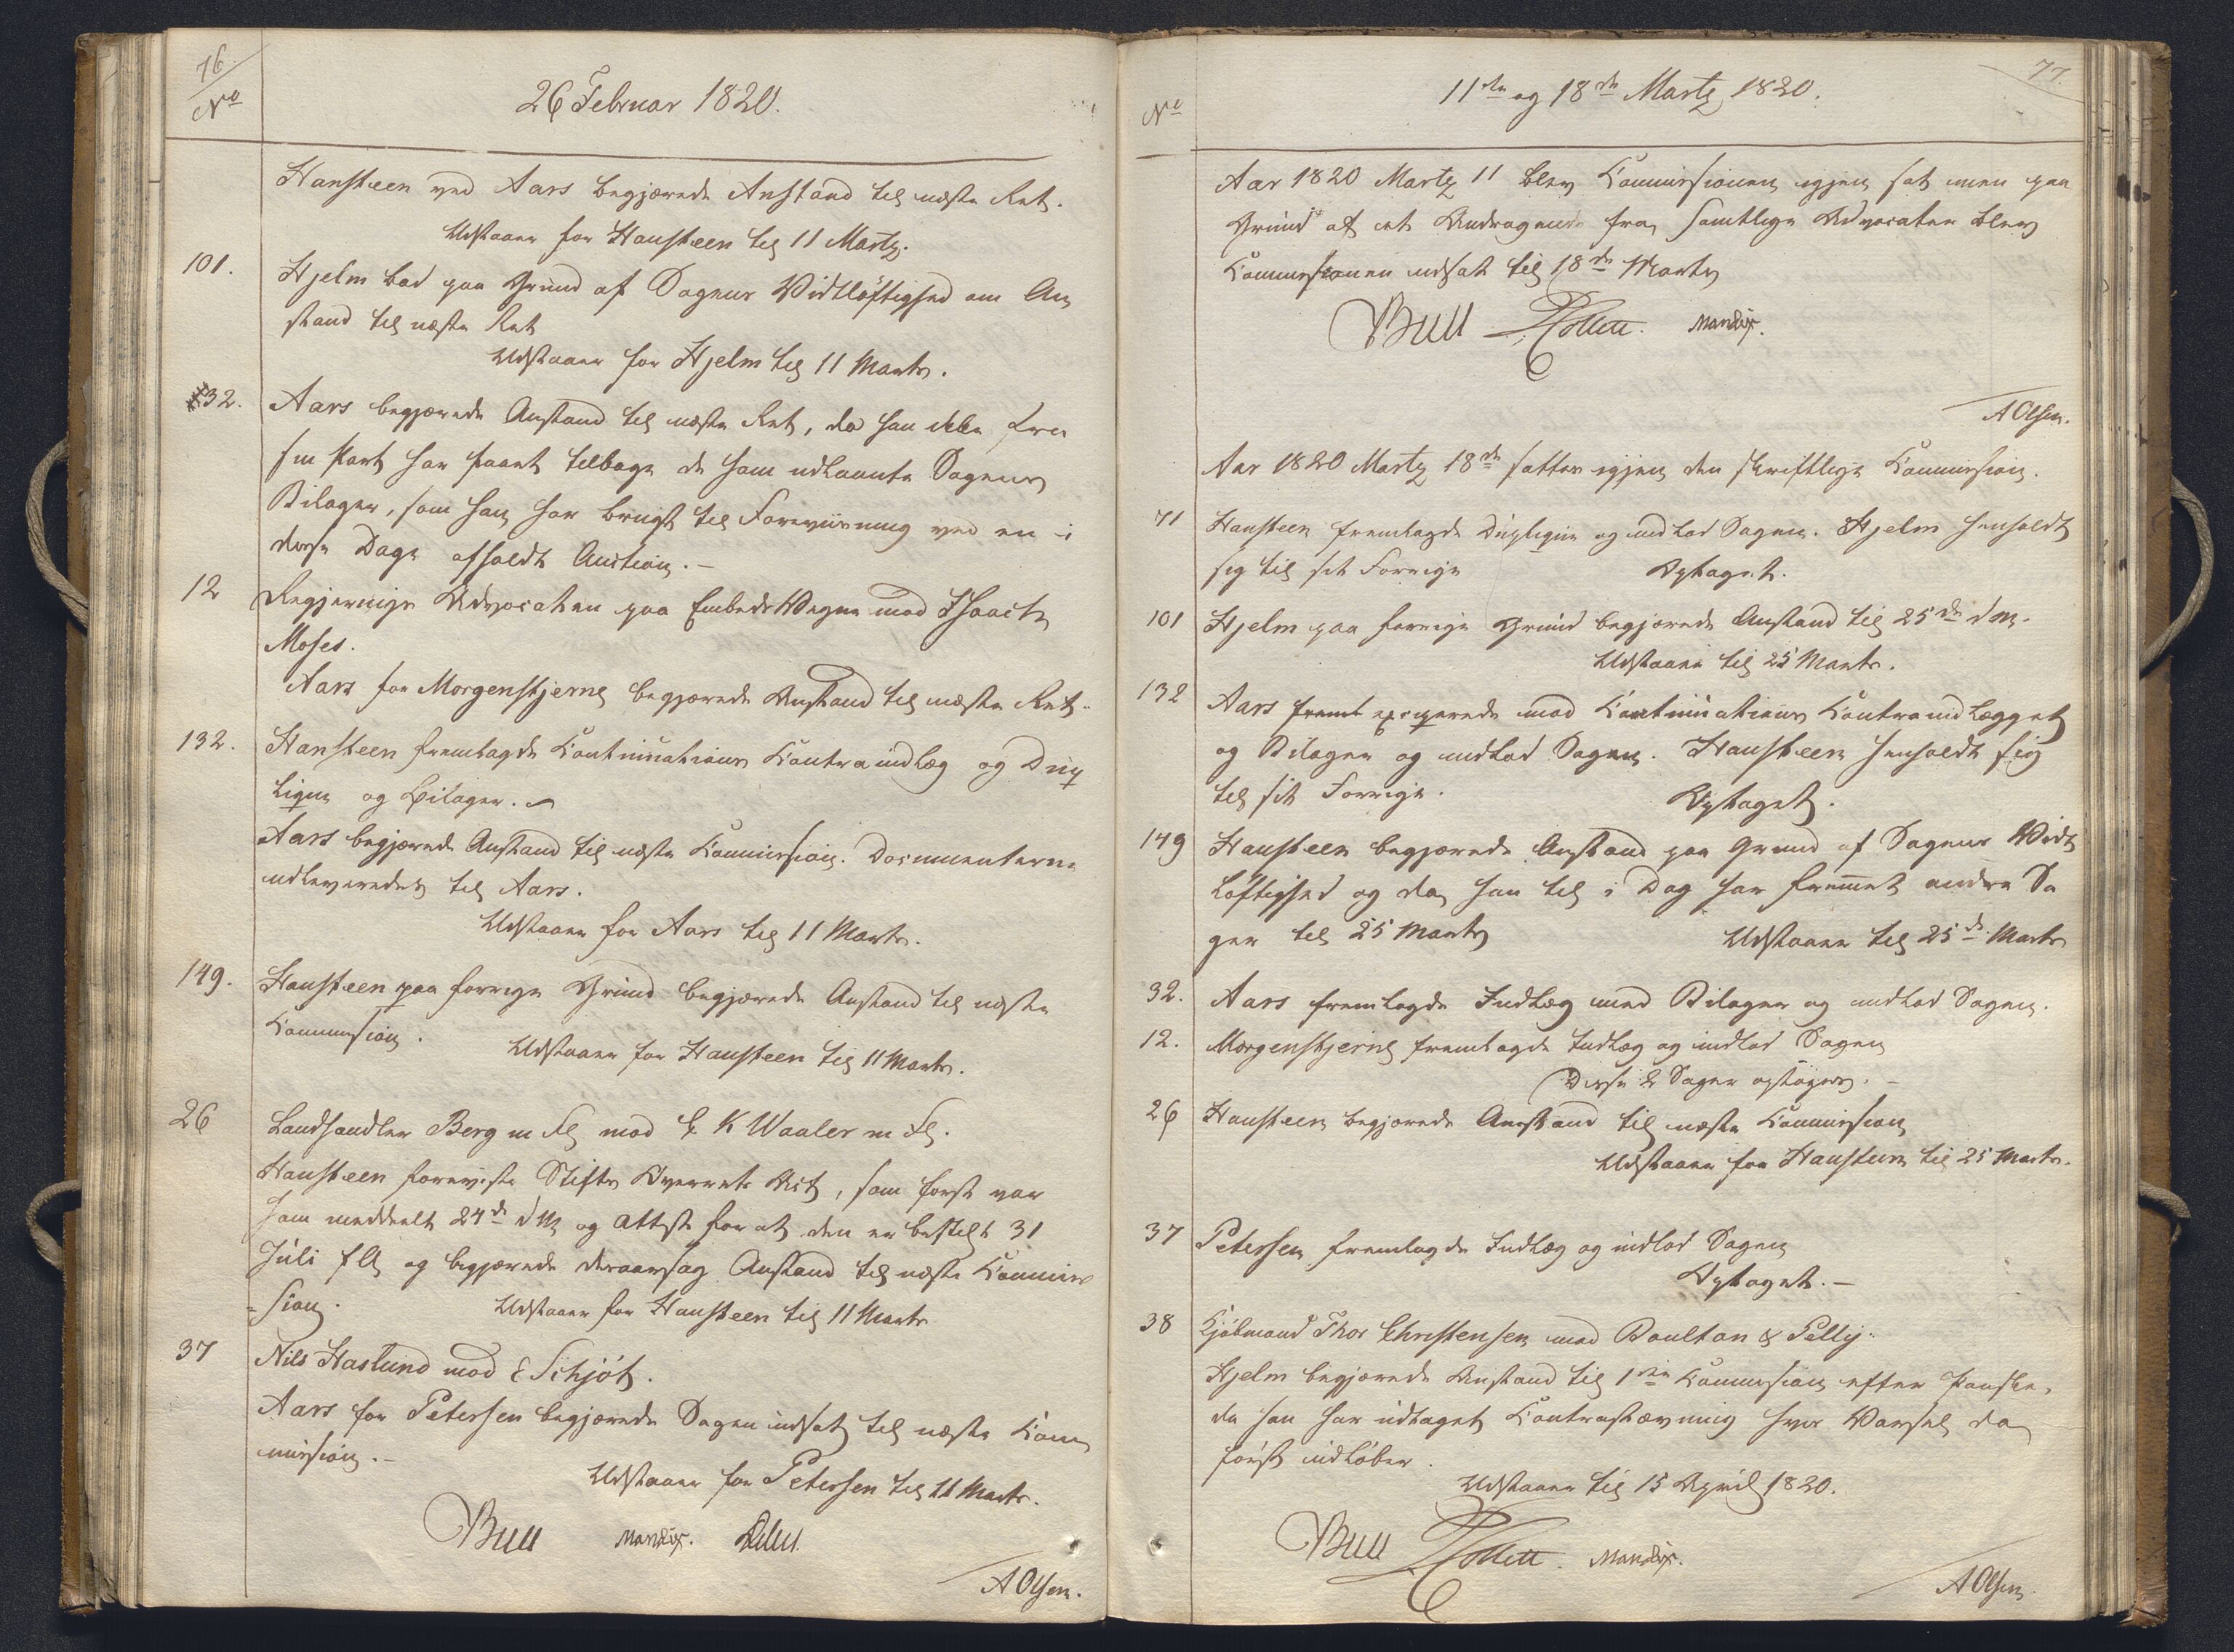 76.
No
26 Februar 1820.
Hansteen ved Aars begjærede Anstand til næste Ret.
Udstaaer for Hansteen til 11 Martz.
101.
Hjelm bad paa Grund af Sagens Vidtløftighed om An
stand til næste Ret
Udstaaer for Hjelm til 11 Marts.
32.
Aars begjærede Anstand til næste Ret, da han ikke fra
sin Part har faaet tilbage de ham udlaante Sagens
Bilager, som han har brugt til Foreviisning ved en i
disse Dage afholdt Auction. —
12
Regjerings Advocaten paa Embeds Vegne mod Isaach
Moses.
Aars for Morgenstjerne begjærede Anstand til næste Ret.
132.
Hansteen fremlagde Continuations Contraindlæg og Dup
liqve og Bilager.
Aars begjærede Anstand til næste Commission. Documenterne
udleveredes til Aars.
Udstaaer for Aars til 11 Marts.
149.
Hansteen paa forrige Grund begjærede Anstand til næste
Commission.
Udstaaer for Hansteen til 11 Marts.
26
Landhandler Berg m Fl mod K Waaler m Fl.
Hansteen foreviste Stifts Overrets Act, som først var
ham meddeelt 24de d M og Attest for at den er bestilt 31
Juli f A og begjærede deraarsag Anstand til næste Commis
-sion.
Udstaaer for Hansteen til 11 Marts
37
Nils Haslund mod E Schjøt.
Aars for Petersen begjærede Sagen udsat til næste Com
mission. —
Udstaaer for Petersen til 11 Marts.
Bull Mandix.
A Olsen.
77.
No
11te og 18de Martz 1820.
Aar 1820 Martz 11 blev Commissionen igjen sat men paa
Grund af et Andragende fra samtlige Advocater blev
Commissionen udsat til 18de Marts
Bull Collett. Mandix.
A Olsen.
Aar 1820 Martz 18de sattes igjen den skriftlige Commission.
71
Hansteen fremlagde Dupliqve og indlod Sagen. Hjelm henholdt
sig til sit Forrige
Optaget.
101
Hjelm paa forrige Grund begjærede Anstand til 25de d M.
Udstaaer til 25 Marts.
132
Aars exciperede mod Continuations Contraindlægget
og Bilager og indlod Sagen. Hansteen henholdt sig
til sit Forrige.
Optaget.
149
Hansteen begjærede Anstand paa Grund af Sagens Vidt
løftighed og da han til i Dag har fremmet andre Sa
ger til 25 Marts
Udstaaer til 25de Marts
32.
Aars fremlagde Indlæg med Bilager og indlod Sagen.
12.
Morgenstjerne fremlagde Indlæg og indlod Sagen
Disse 2 Sager optages. —
26
Hansteen begjærede Anstand til næste Commission
Udstaaer for Hansteen til 25 Marts.
37
Petersen fremlagde Indlæg og indlod Sagen
Optaget. —
38
Kjøbmand Thor Christensen mod Boulton & Pelly.
Hjelm begjærede Anstand til 1ste Commission efter Paaske,
da han har udtaget Contrastævning hvis Varsel da
først udløber.
Udstaaer til 15 April 1820.
Bull Collett. Mandix.
A Olsen.